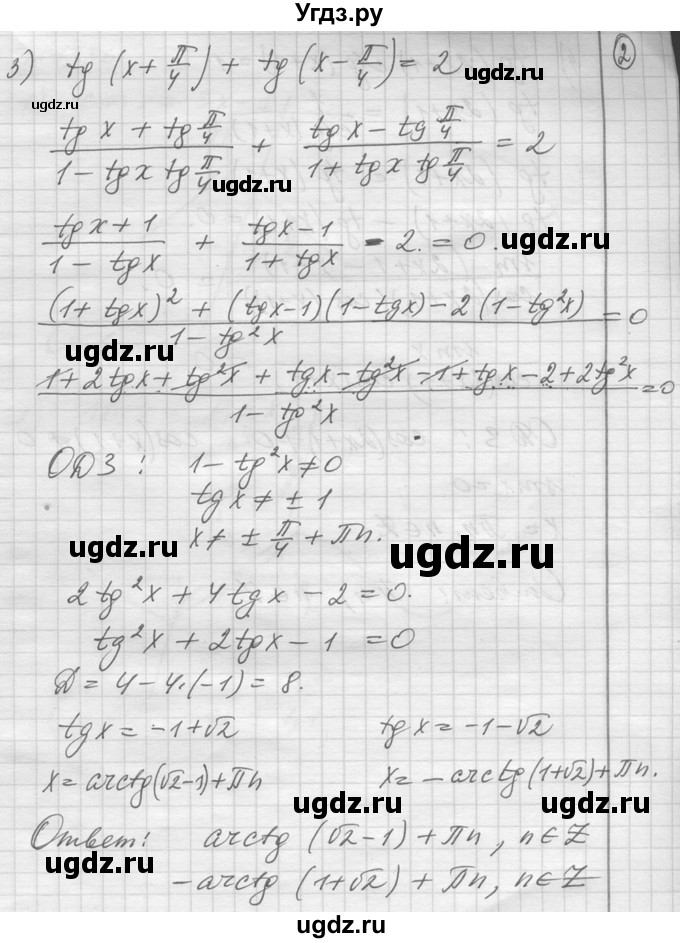 Угдз.ру
3) tg (x + π/4) + tg (x − π/4) = 2
2
ugdz.ru
(tg x + tg π/4)/(1 − tg x tg π/4) + (tg x − tg π/4)/(1 + tg x tg π/4) = 2
ugdz.ru
(tg x + 1)/(1 − tg x) + (tg x − 1)/(1 + tg x) − 2. = 0.
((1 + tg x)² + (tg x − 1)(1 − tg x) − 2(1 − tg² x))/(1 − tg² x) = 0
ugdz.ru
(1 + 2 tg x + tg² x + tg x − tg² x − 1 + tg x − 2 + 2 tg² x)/(1 − tg² x) = 0
ОДЗ: 1 − tg² x ≠ 0
tg x ≠ ± 1
x ≠ ± π/4 + πn.
ugdz.ru
ugdz.ru
2 tg² x + 4 tg x − 2 = 0.
tg² x + 2 tg x − 1 = 0
ugdz.ru
Д = 4 − 4·(−1) = 8.
tg x = −1 + √2 tg x = −1 − √2
ugdz.ru
x = arctg(√2 − 1) + πn x = − arctg(1 + √2) + πn.
ugdz.ru
ugdz.ru
Ответ: arctg (√2 − 1) + πn, n ∈ Z
− arctg (1 + √2) + πn, n ∈ Z
ugdz.ru
ugdz.ru